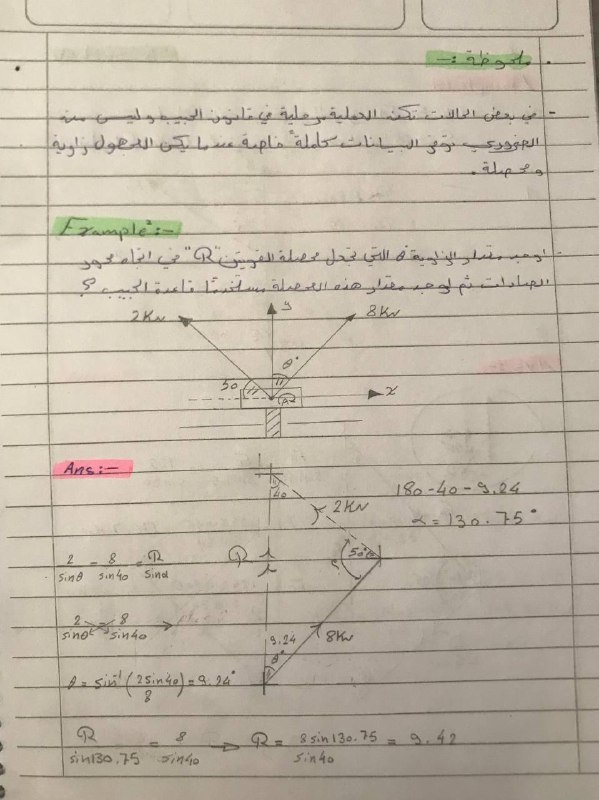 ملحوظة :-
- في بعض الحالات تكون العملية مرحلية في قانون الجيب وليس من
الضروري توفر البيانات كاملة خاصة عندما يكون المجهول زاوية
ومحصلة .
Example:-
- اوجد مقدار الزاوية θ التي تجعل محصلة القوتين "R" في اتجاه محور
الصادات ثم اوجد مقدار هذه المحصلة مستخدمًا قاعدة الجيب ؟
2KN y 8KN
θ°
50 x
Ans:-
40 180-40-9.24
2KN α=130.75°
2/sinθ = 8/sin40 = R/sinα R 50°
2/sinθ = 8/sin40 →
9.24 8KN
θ°
θ = sin⁻¹(2sin40/8) = 9.24°
R/sin130.75 = 8/sin40 → R = 8sin130.75/sin40 = 9.42